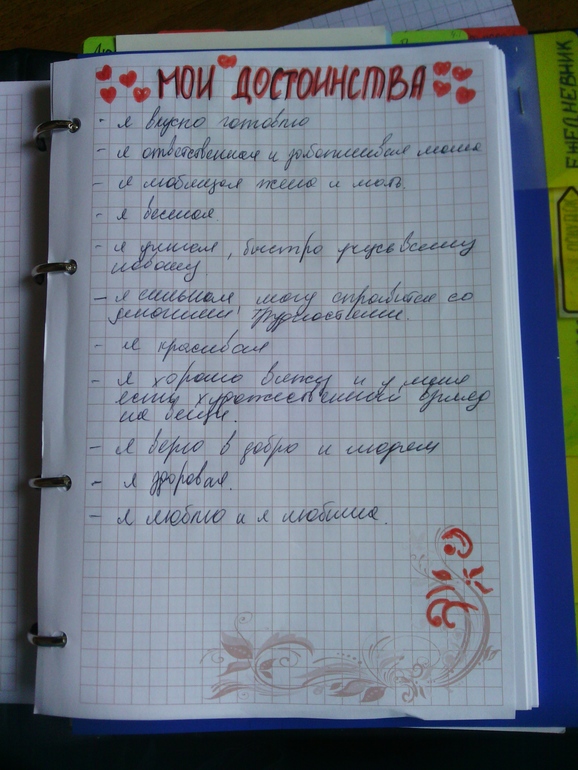 МОИ ДОСТОИНСТВА
- я вкусно готовлю
- я ответственная и заботливая мама
- я любящая жена и мать.
- я веселая.
- я умная, быстро учусь всему
новому
- я сильная, могу справится со
многими трудностями.
- я красивая
- я хорошо вяжу и у меня
есть художественный взгляд
на вещи.
- я верю в добро и людям
- я здоровая.
- я люблю и я любима.
ЕЖЕДНЕВНИК